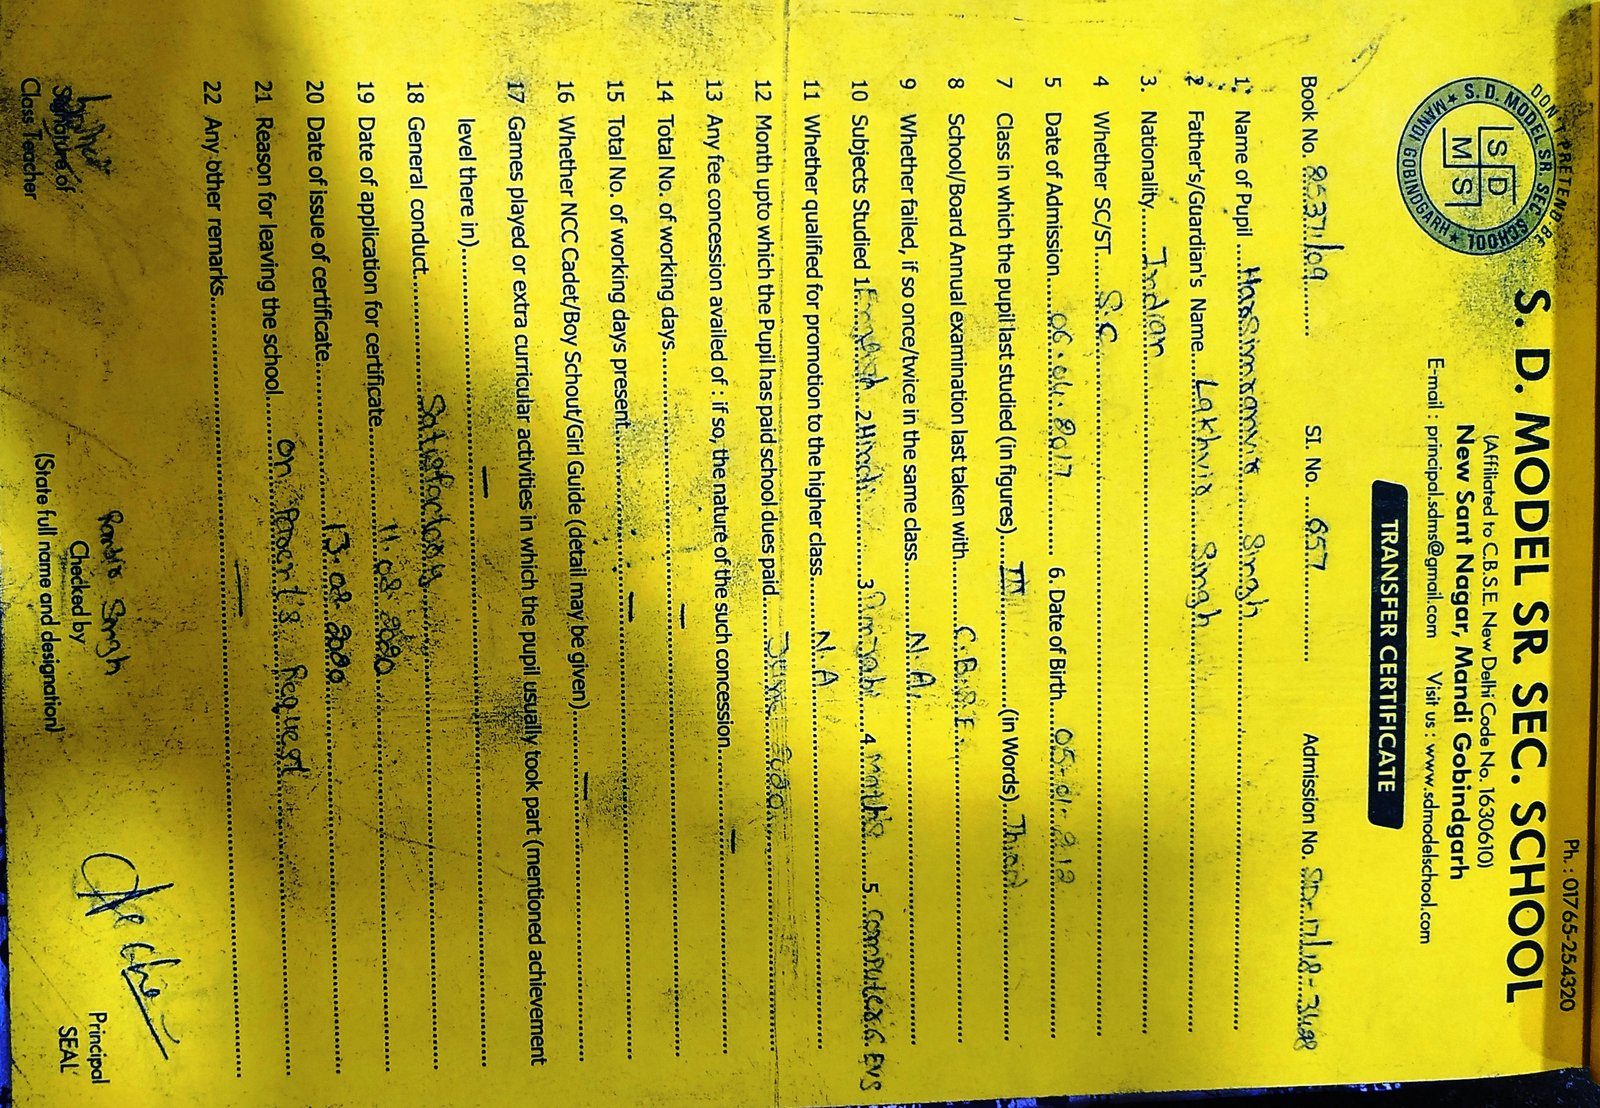 Ph. : 01765-254320
DON'T PRETEND BE
S. D. MODEL SR. SEC. SCHOOL
★ S. D. MODEL SR. SEC. SCHOOL ★ MANDI GOBINDGARH
S D
M S
(Affiliated to C.B.S.E. New Delhi Code No. 1630610)
New Sant Nagar, Mandi Gobindgarh
E-mail : principal.sdms@gmail.com Visit us : www.sdmodelschool.com
TRANSFER CERTIFICATE
Book No. 8537/09 SI. No. 657 Admission No. SD-17/18-3498
1. Name of Pupil Harsimranvir Singh
2. Father's/Guardian's Name Lakhvir Singh
3. Nationality Indian
4 Whether SC/ST S.C
5 Date of Admission 06.04.2017 6. Date of Birth 05-01-212
7 Class in which the pupil last studied (in figures) III (in Words) Third
8 School/Board Annual examination last taken with C.B.S.E.
9 Whether failed, if so once/twice in the same class N.A.
10 Subjects Studied 1. English 2 Hindi 3 Punjabi 4 Maths 5 Computer 6. EVS
11 Whether qualified for promotion to the higher class N.A
12 Month upto which the Pupil has paid school dues paid 2020
13 Any fee concession availed of : if so, the nature of the such concession —
14 Total No. of working days —
15 Total No. of working days present —
16 Whether NCC Cadet/Boy Schout/Girl Guide (detail may be given) —
17 Games played or extra curricular activities in which the pupil usually took part (mentioned achievement
level there in) —
18 General conduct Satisfactory
19 Date of application for certificate 11.08.2020
20 Date of issue of certificate 13.08.2020
21 Reason for leaving the school On Parent's Request
22 Any other remarks —
Signature of
Class Teacher
Singh
Checked by
(State full name and designation)
Principal
SEAL